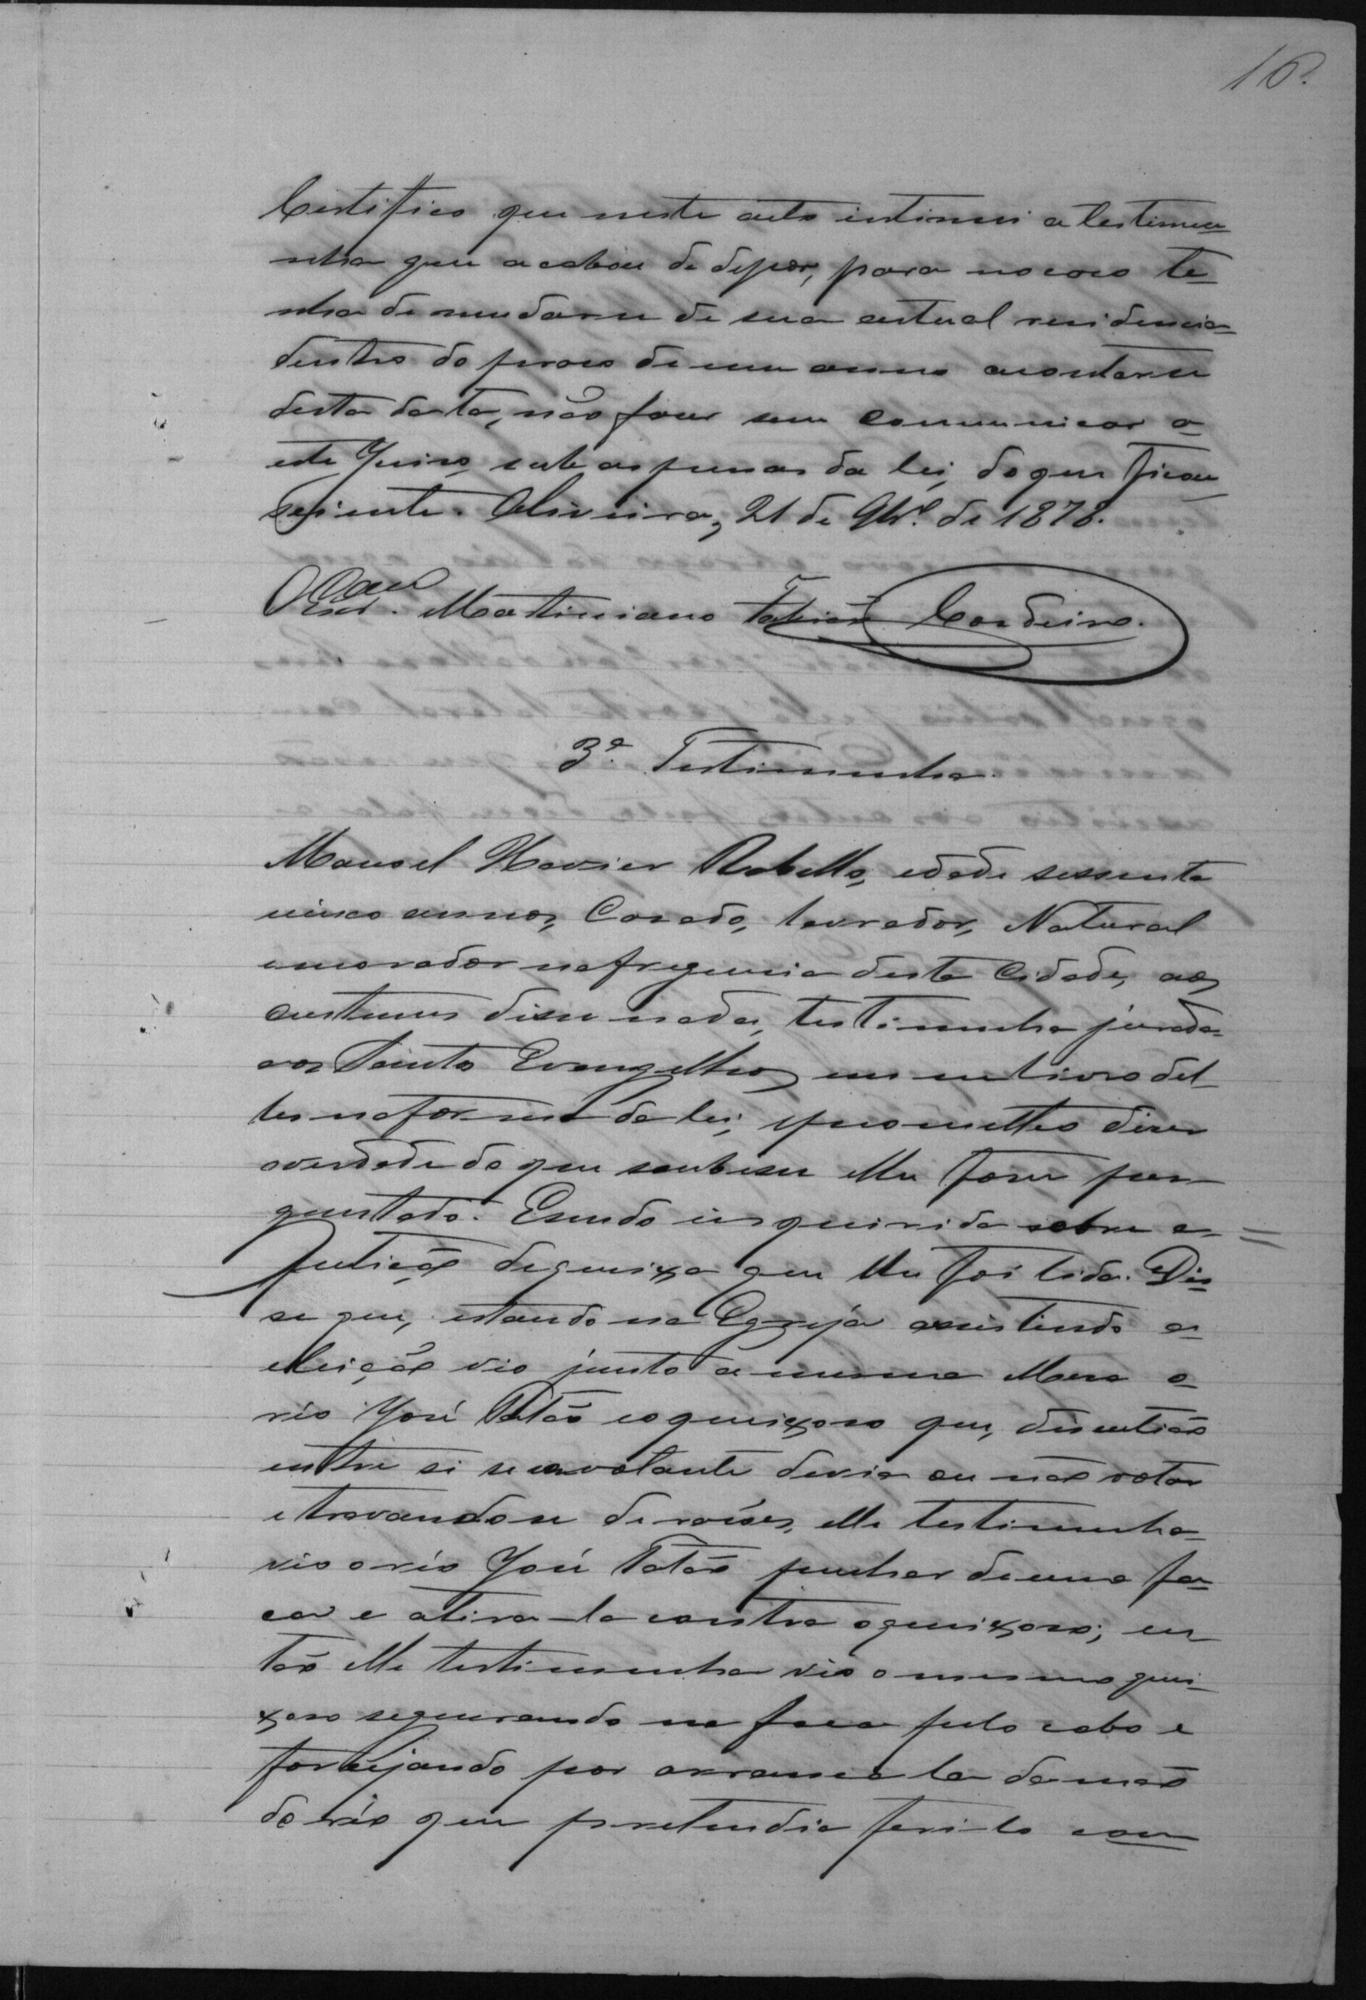 16.
Certifico que neste acto intimei a testemu
nha que acabou de depor, para no caso te
nha de mudarse de sua actual residencia
dentro do praso de um anno acontarse
desta data, não faser sem communicar a
este Juiso, sub as penas da lei, do que ficou
sciente. Oliveira, 21 de 9br.º de 1878.
O Escr. Martiniano Fabião Cordeiro.
3ª Testimunha.
Manoel Xavier Rabello, edade sessenta
cinco annos, Casado, lavrador, Natural
emorador nafreguesia desta Cidade, aos
custumes disse nada, testimunha jurada
aos Santos Evangelhos em um livro del
les naforma da lei, eprometteo diser
averdade do que soubesse elhe fosse per
guntado. Esendo inquirida sobre a
petição dequeixa que lhe foi lida. Dis
se que, estando na Egreja assistindo a
eleição vio junto a mesma Mesa o
réo José Patão eoqueixoso que, discutião
entre si se ovotante devia ou não votar
etravandose derasões, elle testimunha
vio o réo José Patão puchar deuma fa
ca e atira-la contra oqueixoso; en
tão elle testimunha vio o mesmo quei
xoso segurando na faca pelo cabo e
forcejando por arranca la da mão
do réo que pretendia feri-lo com